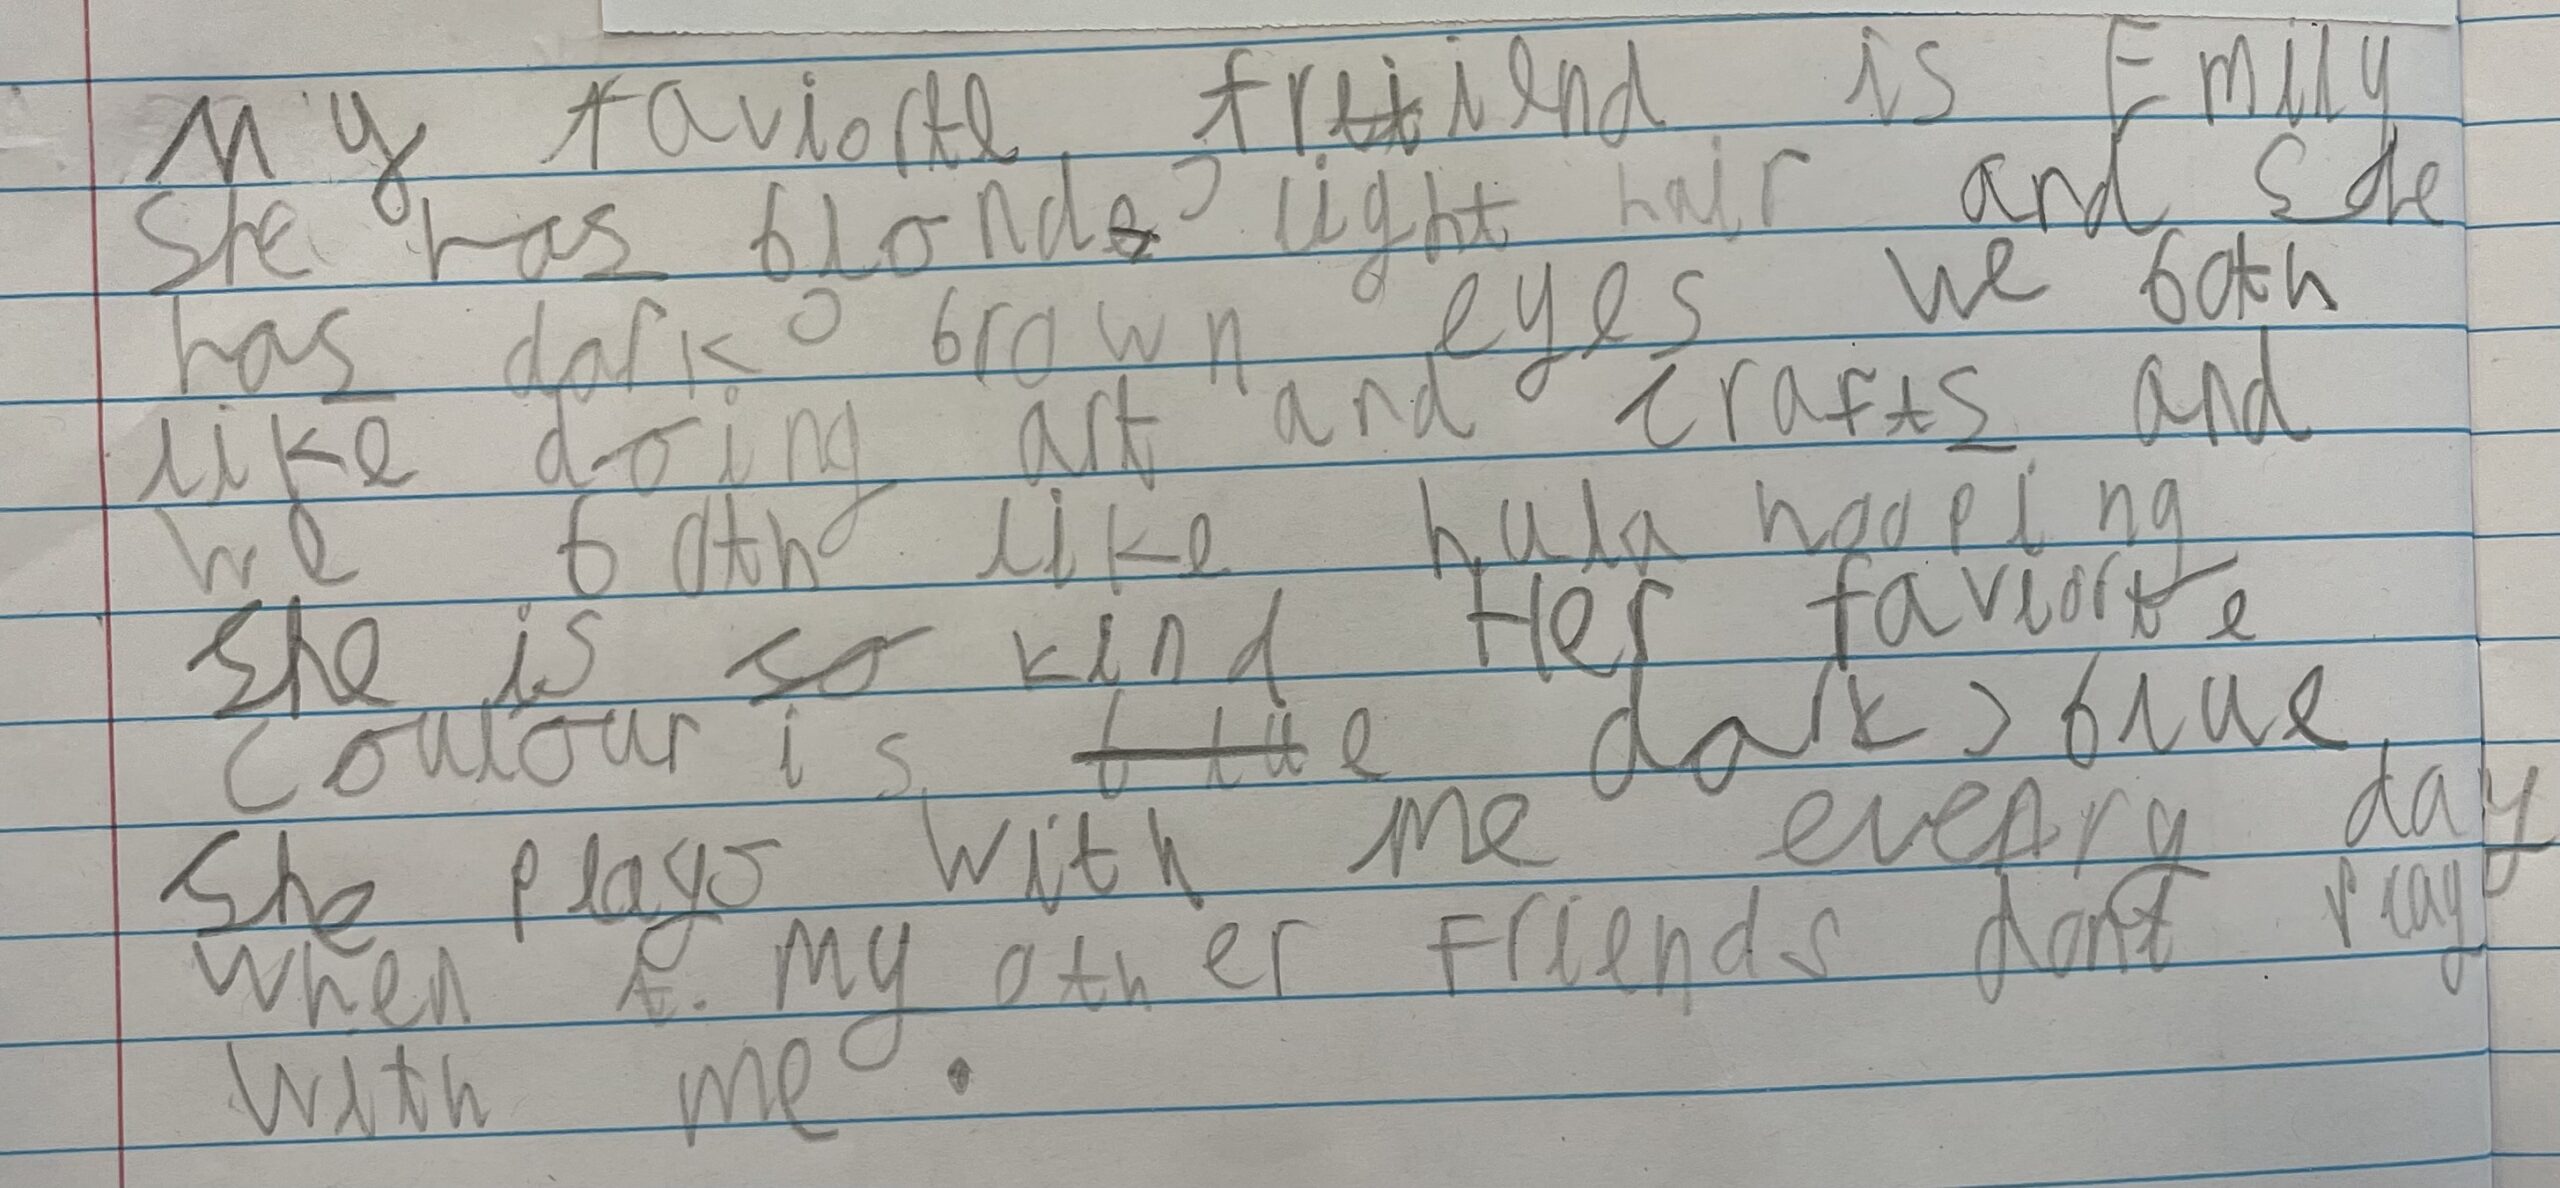 My faviorte friend is Emily
She has blonde, light hair and She
has dark, brown eyes we both
like doing art and crafts and
we both like hula hooping
She is so kind Her faviorte
coulour is dark, blue
She plays with me every day
when my other Friends don't play
with me.